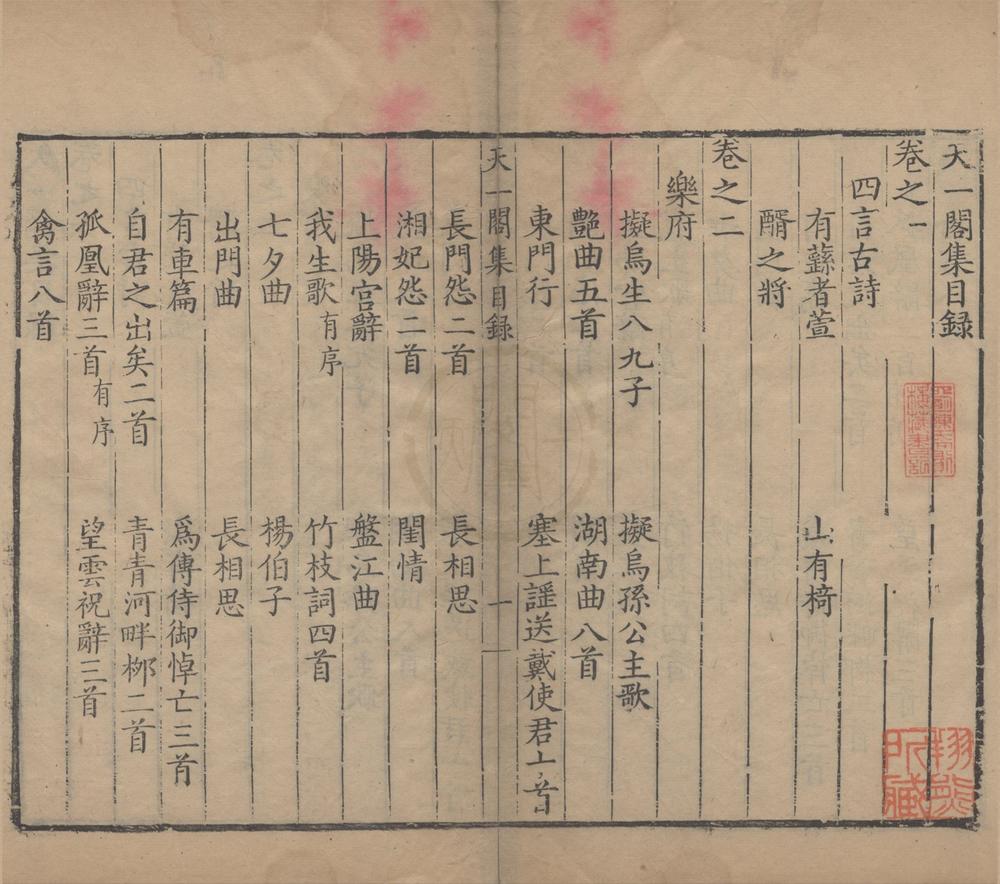 天一閣集目録
卷之一
四言古詩
有蘇者萱　山有椅
醑之將
卷之二
樂府
擬烏生八九子　擬烏孫公主歌
艷曲五首　湖南曲八首
東門行　塞上謡送戴使君二首
天一閣集目録　一
長門怨二首　長相思
湘妃怨二首　閨情
上陽宫辭　盤江曲
我生歌有序　竹枝詞四首
七夕曲　楊伯子
出門曲　長相思
有車篇　爲傅侍御悼亡三首
自君之出矣二首　青青河畔栁二首
孤凰辭三首有序　望雲祝辭三首
禽言八首